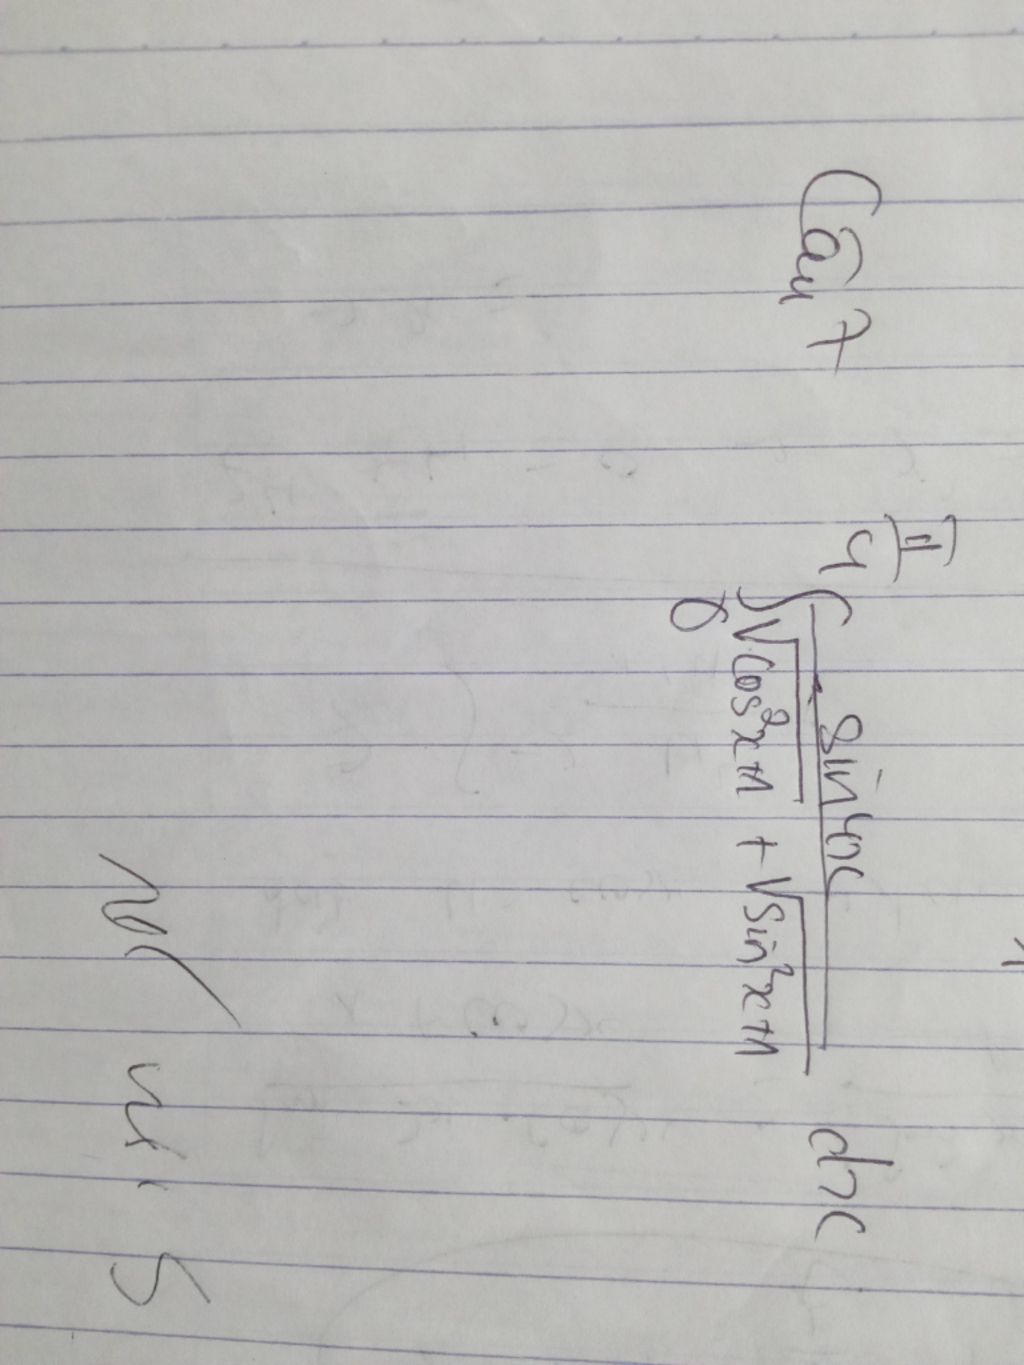 Câu 7
∫₀^(π/4) sin4x / (√(cos²x+1) + √(sin²x+1)) dx